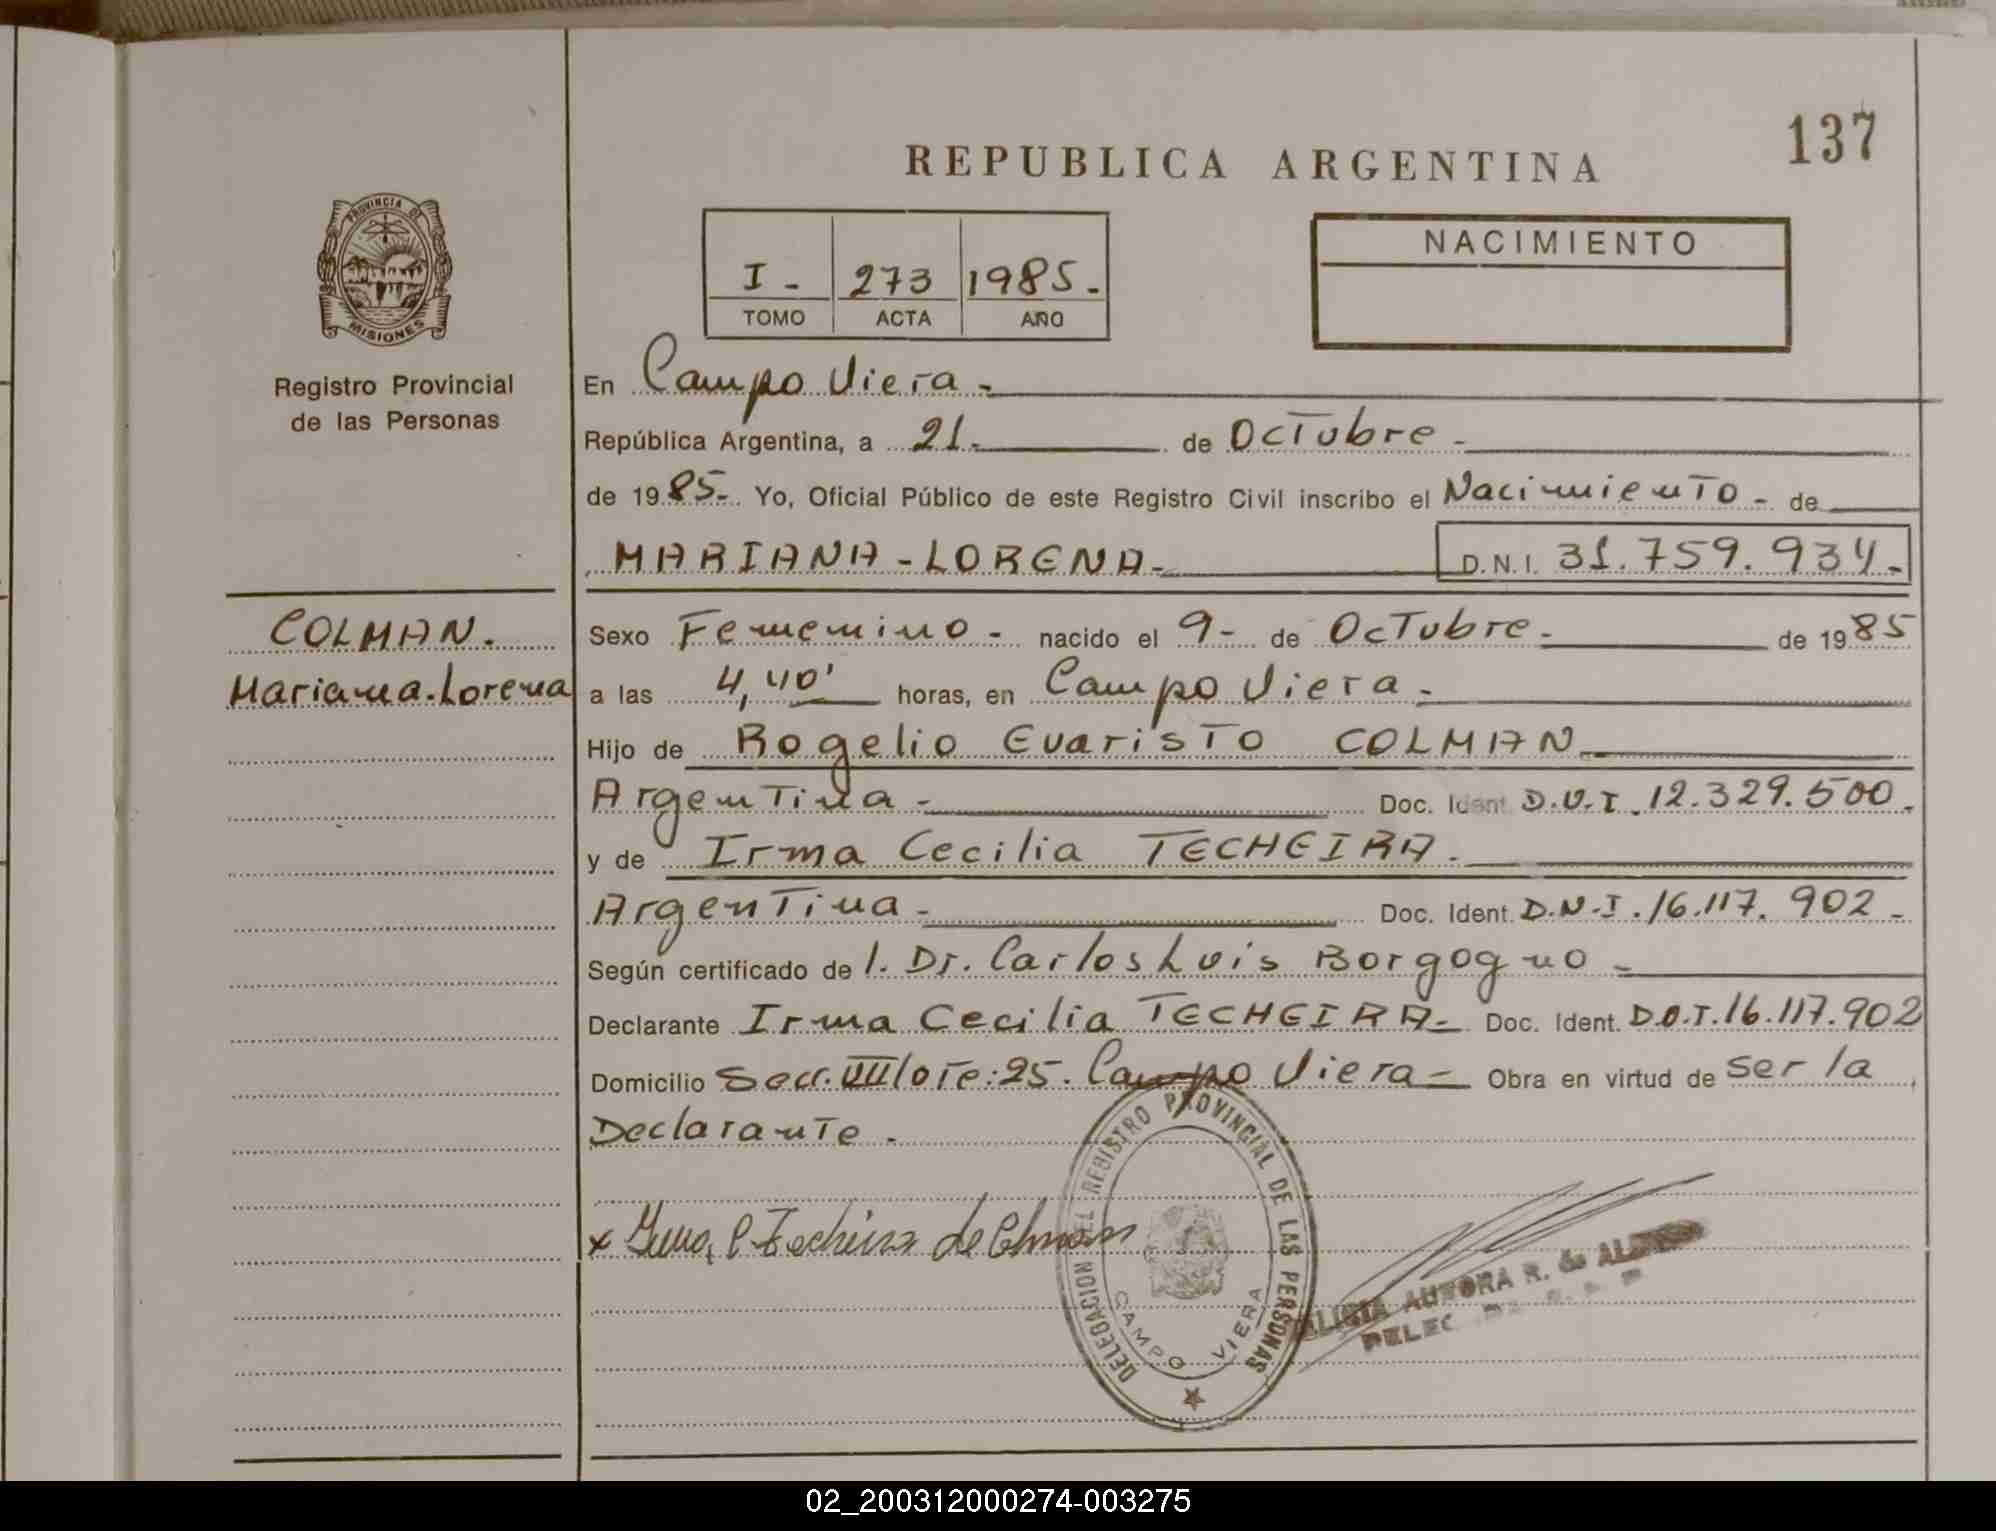 137
REPUBLICA ARGENTINA
PROVINCIA DE
MISIONES
Registro Provincial
de las Personas
I - 273 1985.-
TOMO ACTA AÑO
NACIMIENTO
En Campo Viera.-
República Argentina, a 21.- de Octubre.-
de 1985.- Yo, Oficial Público de este Registro Civil inscribo el Nacimiento - de
MARIANA - LORENA.- D.N.I. 31.759.934.-
COLMAN.
Mariana.Lorena
Sexo Fememino - nacido el 9- de Octubre.- de 1985
a las 4,40' horas, en Campo Viera.-
Hijo de Rogelio Evaristo COLMAN.-
Argentina.- Doc. Ident. D.N.I. 12.329.500.
y de Irma Cecilia TECHEIRA.-
Argentina.- Doc. Ident. D.N.I. 16.117.902 -
Según certificado de l. Dr. Carlos Luis Borgogno -
Declarante Irma Cecilia TECHEIRA.- Doc. Ident. D.N.I. 16.117.902
Domicilio Secc. VIII lote: 25. Campo Viera - Obra en virtud de ser la
Declarante.-
x Irma C Techeira de Colman
DELEGACION DEL REGISTRO PROVINCIAL DE LAS PERSONAS
CAMPO VIERA
ALICIA AURORA R. de
DELEG
02_200312000274-003275